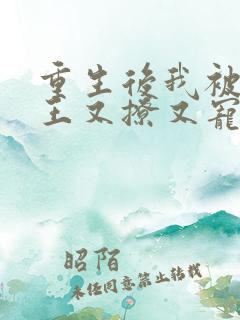 重生後我被
王又撩又寵
昭陌
未经同意禁止转载